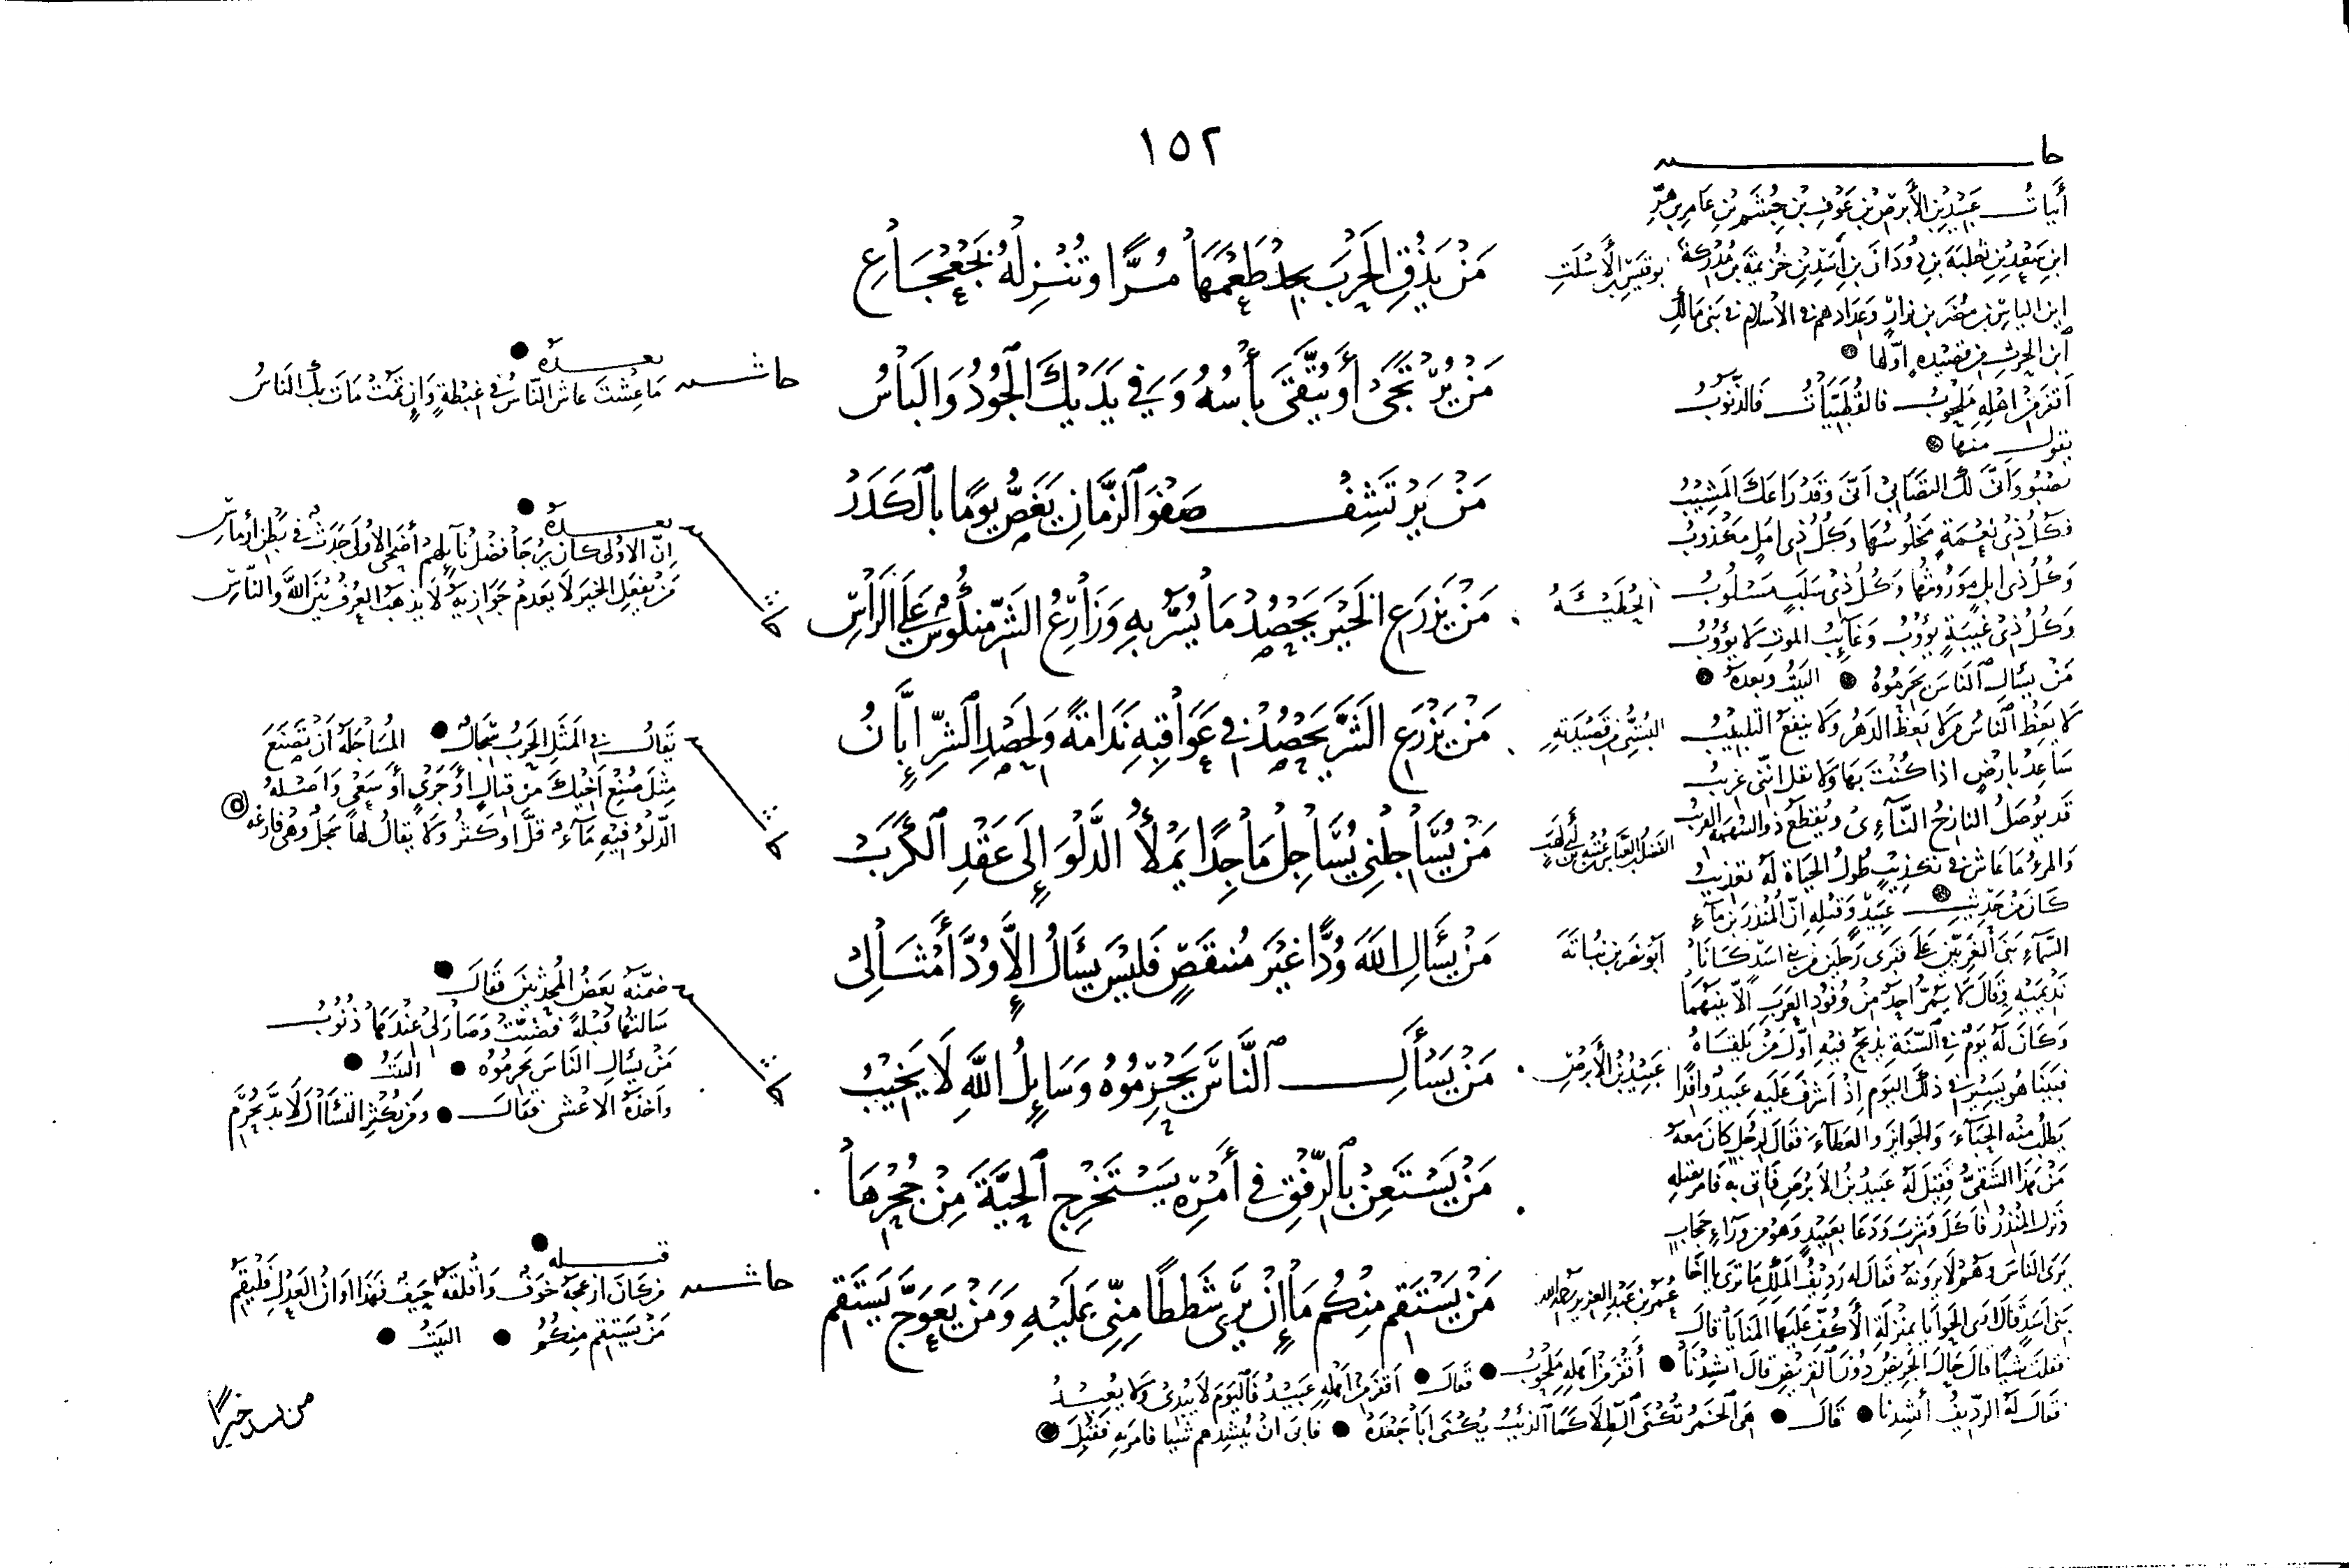 ١٥٢
مَنْ يَذُقِ الْحَرْبَ يَجِدْ طَعْمَهَا مُرًّا وَتُنْزِلْهُ بِجَعْجَاعِ
مَنْ يُرْتَجَى أَوْ يُتَّقَى بَأْسُهُ وَفِي يَدَيْكَ الْجُودُ وَالْبَأْسُ
مَنْ يَرْتَشِفْ صَفْوَ الزَّمَانِ يَغَصُّ يَوْمًا بِالْكَدَرْ
الحُطَيْئَةُ
مَنْ يَزْرَعِ الْخَيْرَ يَحْصُدْ مَا يُسَرُّ بِهِ وَزَارِعُ الشَّرِّ مَنْكُوسٌ عَلَى الرَّاسِ
البُسْتِيُّ مِنْ قَصِيدَتِهِ
مَنْ يَزْرَعِ الشَّرَّ يَحْصُدْ فِي عَوَاقِبِهِ نَدَامَةً وَلِحَصْدِ الشَّرِّ إِبَّانُ
الفضل بن العباس بن عتبة بن أبي لهب
مَنْ يُسَاجِلْنِي يُسَاجِلْ مَاجِدًا يَمْلَأُ الدَّلْوَ إِلَى عَقْدِ الْكَرَبْ
أبو نصر بن نباتة
مَنْ يَسْأَلِ اللَّهَ وُدًّا غَيْرَ مُنْتَقَصٍ فَلَيْسَ يَسْأَلُ إِلَّا وُدَّ أَمْثَالِي
عَبِيدُ بْنُ الأَبْرَصِ
مَنْ يَسْأَلِ النَّاسَ يَحْرِمُوهُ وَسَائِلُ اللَّهِ لَا يَخِيبُ
مَنْ يَسْتَعِنْ بِالرِّفْقِ فِي أَمْرِهِ يَسْتَخْرِجِ الْحَيَّةَ مِنْ جُحْرِهَا
عُمَر بن عَبْد العزيز رحمه الله
مَنْ يَسْتَقِمْ مِنْكُمْ مَا إِنْ يَرَى شَطَطًا مِنِّي عَلَيْهِ وَمَنْ يَعْوَجَّ يَسْتَقِمِ
حاشـــــــه
أبيات عَبِيدِ بْنِ الأَبْرَصِ بْنِ عَوْفِ بْنِ جُشَمِ بْنِ عَامِرِ بْنِ هِرِّ
ابن سَعْدِ بْنِ ثَعْلَبَةَ بْنِ دُودَانَ بْنِ أَسَدِ بْنِ خُزَيْمَةَ بْنِ مُدْرِكَة
ابن الياس بن مضر بن نزار وعدادهم في الاسلام في بني مالك
ابن الحرث من قصيدة اولها
أَقْفَرَ مِنْ أَهْلِهِ مَلْحُوبُ فَالْقُطَبِيَّاتُ فَالذَّنُوبُ
يقول منها
تَصْبُو وَأَنَّى لَكَ التَّصَابِي أَنَّى وَقَدْ رَاعَكَ الْمَشِيبُ
فَكُلُّ ذِي نِعْمَةٍ مَخْلُوسُهَا وَكُلُّ ذِي أَمَلٍ مَكْذُوبُ
وَكُلُّ ذِي إِبِلٍ مَوْرُوثُهَا وَكُلُّ ذِي سَلَبٍ مَسْلُوبُ
وَكُلُّ ذِي غَيْبَةٍ يَؤُوبُ وَغَائِبُ الْمَوْتِ لَا يَؤُوبُ
مَنْ يَسْأَلِ النَّاسَ يَحْرِمُوهُ البَيْتُ وَبَعْدَهُ
لَا يَعِظُ النَّاسُ مَنْ لَا يَعِظُ الدَّهْرُ وَلَا يَنْفَعُ التَّلْبِيبُ
سَاعِدْ بِأَرْضٍ إِذَا كُنْتَ بِهَا وَلَا تَقُلْ إِنَّنِي غَرِيبُ
قَدْ يُوصَلُ النَّازِحُ النَّائِي وَيُقْطَعُ ذُو السُّهْمَةِ الْقَرِيبُ
وَالْمَرْءُ مَا عَاشَ فِي تَكْذِيبٍ طُولُ الْحَيَاةِ لَهُ تَعْذِيبُ
كَانَ مِنْ حَدِيثِ عَبِيدٍ وَقَتْلِهِ أَنَّ الْمُنْذِرَ بْنَ مَاءِ
السَّمَاءِ بَنَى الْغَرِيَّيْنِ عَلَى قَبْرَيْ رَجُلَيْنِ مِنْ بَنِي أَسَدٍ كَانَا
نَدِيمَيْهِ وَقَالَ لَا يَمُرُّ أَحَدٌ مِنْ وُفُودِ الْعَرَبِ إِلَّا بَيْنَهُمَا
وَكَانَ لَهُ يَوْمٌ فِي السَّنَةِ يَذْبَحُ فِيهِ أَوَّلَ مَنْ يَلْقَاهُ
فَبَيْنَا هُوَ يَسِيرُ فِي ذَلِكَ الْيَوْمِ إِذْ أَشْرَفَ عَلَيْهِ عَبِيدٌ وَافِدًا
يَطْلُبُ مِنْهُ الْحِبَاءَ وَالْجَوَائِزَ وَالْعَطَاءَ فَقَالَ لِرَجُلٍ كَانَ مَعَهُ
مَنْ هَذَا الشَّقِيُّ فَقِيلَ لَهُ عَبِيدُ بْنُ الأَبْرَصِ فَأُتِيَ بِهِ فَأَمَرَ بِقَتْلِهِ
وَنَزَلَ الْمُنْذِرُ فَأَكَلَ وَشَرِبَ وَدَعَا بِعَبِيدٍ وَهُوَ مِنْ وَرَاءِ حِجَابٍ
يَرَى النَّاسَ وَهُمْ لَا يَرَوْنَهُ فَقَالَ لَهُ رَدِيفُ الْمَلِكِ مَا تَرَى يَا أَخَا
بَنِي أَسَدٍ قَالَ أَرَى الْحَوَايَا عَلَيْهَا الْمَنَايَا قَالَ
فَقُلْتَ شَيْئًا قَالَ حَالَ الْجَرِيضُ دُونَ الْقَرِيضِ قَالَ أَنْشِدْنَا أَقْفَرَ مِنْ أَهْلِهِ مَلْحُوبُ فَقَالَ أَقْفَرَ مِنْ أَهْلِهِ عَبِيدُ فَالْيَوْمَ لَا يُبْدِي وَلَا يُعِيدُ
فَقَالَ لَهُ الرَّدِيفُ أَنْشِدْنَا قَالَ هِيَ الْخَمْرُ تُكْنَى الطِّلَا كَمَا الذِّئْبُ يُكْنَى أَبَا جَعْدَةَ فَأَبَى أَنْ يُنْشِدَهُمْ شَيْئًا فَأَمَرَ بِهِ فَقُتِلَ
حاشـــــه
بعـــــده
مَا عِشْتَ عَاشَ النَّاسُ فِي غِبْطَةٍ وَإِنْ تَمُتْ مَاتَ بِكَ النَّاسُ
بعـــــده
مَنْ يَفْعَلِ الْخَيْرَ لَا يَعْدَمْ جَوَازِيَهُ لَا يَذْهَبُ الْعُرْفُ بَيْنَ اللَّهِ وَالنَّاسِ
يُقَالُ فِي الْمَثَلِ الْحَرْبُ سِجَالٌ الْمُسَاجَلَةُ أَنْ تَصْنَعَ
مِثْلَ صُنْعِ أَخِيكَ مِنْ قِتَالٍ أَوْ جَرْيٍ أَوْ سَقْيٍ وَأَصْلُهُ
الدَّلْوُ فِيهِ مَاءٌ قَلَّ أَوْ كَثُرَ وَلَا يُقَالُ لَهَا سَجْلٌ وَهِيَ فَارِغَة
ضَمَّنَهُ بَعْضُ الْمُحْدَثِينَ فَقَالَ
سَأَلْتُهَا قُبْلَةً فَضَنَّتْ وَصَارَ لِي عِنْدَهَا ذُنُوبُ
مَنْ يَسْأَلِ النَّاسَ يَحْرِمُوهُ البَيْتُ
وَأَخَذَهُ الأَعْشَى فَقَالَ وَمَنْ يُكْثِرِ التَّسْآلَ لَا بُدَّ يُحْرَمُ
حاشـــــه
قبـــــله
مَنْ كَانَ أَزْعَجَهُ خَوْفٌ وَأَقْلَقَهُ حَيْفٌ فَهَذَا أَوَانُ الْعَدْلِ فَلْيُقِمِ
مَنْ يَسْتَقِمْ مِنْكُمْ البَيْتُ